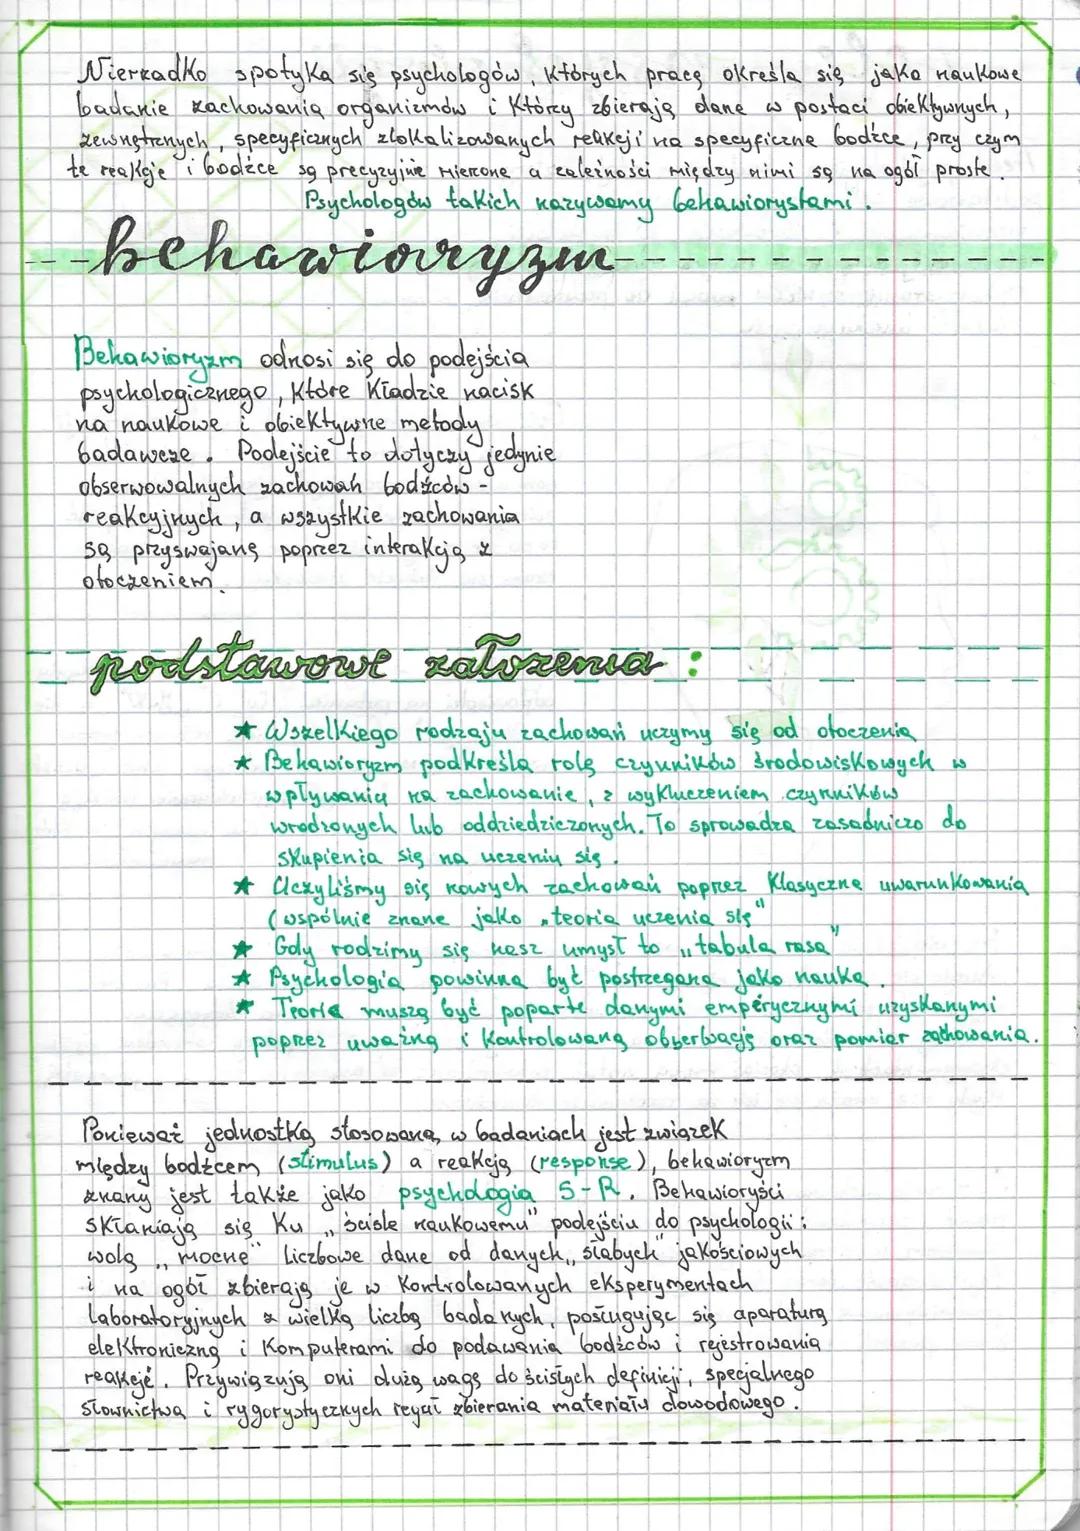 Nierzadko spotyka się psychologów, których pracę określa się jako naukowe
badanie zachowania organizmów i którzy zbierają dane w postaci obiektywnych,
zewnętrznych, specyficznych zlokalizowanych reakcji na specyficzne bodźce, przy czym
te reakcje i bodźce są precyzyjnie mierzone a zależności między nimi są na ogół proste.
Psychologów takich nazywamy behawiorystami.
behawioryzm
Behawioryzm odnosi się do podejścia
psychologicznego, które kładzie nacisk
na naukowe i obiektywne metody
badawcze. Podejście to dotyczy jedynie
obserwowalnych zachowań bodźców -
reakcyjnych, a wszystkie zachowania
są przyswajane poprzez interakcję z
otoczeniem.
podstawowe założenia:
★ Wszelkiego rodzaju zachowań uczymy się od otoczenia
★ Behawioryzm podkreśla rolę czynników środowiskowych w
wpływaniu na zachowanie, z wykluczeniem czynników
wrodzonych lub oddziedziczonych. To sprowadza zasadniczo do
skupienia się na uczeniu się.
★ Uczyliśmy się nowych zachowań poprzez klasyczne uwarunkowania
(wspólnie znane jako „teoria uczenia się"
★ Gdy rodzimy się nasz umysł to „tabula rasa"
★ Psychologia powinna być postrzegana jako nauka.
★ Teorie muszą być poparte danymi emperycznymi uzyskanymi
poprzez uważną i kontrolowaną obserwację oraz pomiar zachowania.
Ponieważ jednostką stosowaną w badaniach jest związek
między bodźcem (stimulus) a reakcją (response), behawioryzm
znany jest także jako psychologia S-R. Behawioryści
skłaniają się ku „ściśle naukowemu" podejściu do psychologii:
wolą „mocne" liczbowe dane od danych „słabych" jakościowych
i na ogół zbierają je w kontrolowanych eksperymentach
laboratoryjnych z wielką liczbą badanych, posługując się aparaturą
elektroniczną i komputerami do podawania bodźców i rejestrowania
reakcji. Przywiązują oni dużą wagę do ścisłych definicji, specjalnego
słownictwa i rygorystycznych reguł zbierania materiału dowodowego.